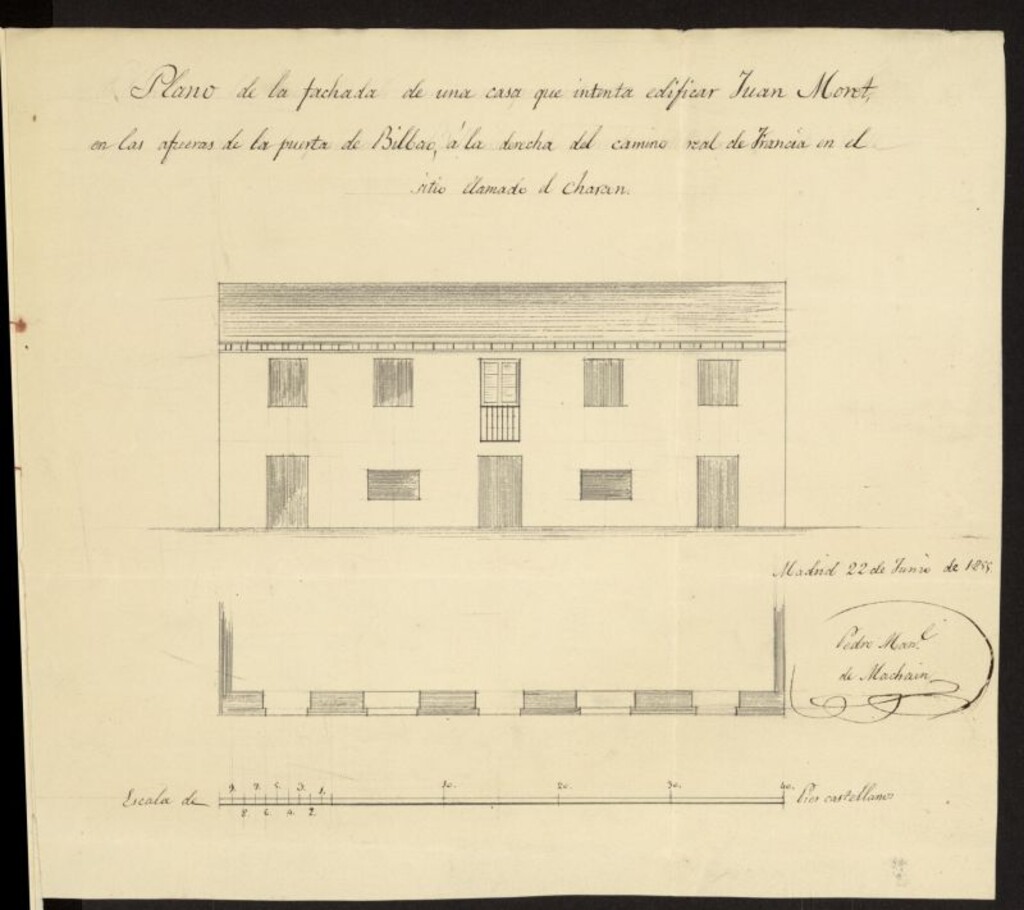 Plano de la fachada de una casa que intenta edificar Juan Moret,
en las afueras de la puerta de Bilbao, á la derecha del camino real de Francia en el
sitio llamado el
Madrid 22 de Junio de 1855.
Pedro Man.l
de Machain
9. 7. 5. 3. 1. 10. 20. 30. 40.
Escala de Pies castellanos
8. 6. 4. 2.